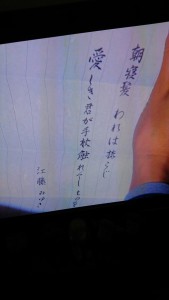 朝寝髪 われは梳らじ
愛しき君が手枕触れてしもの
江藤